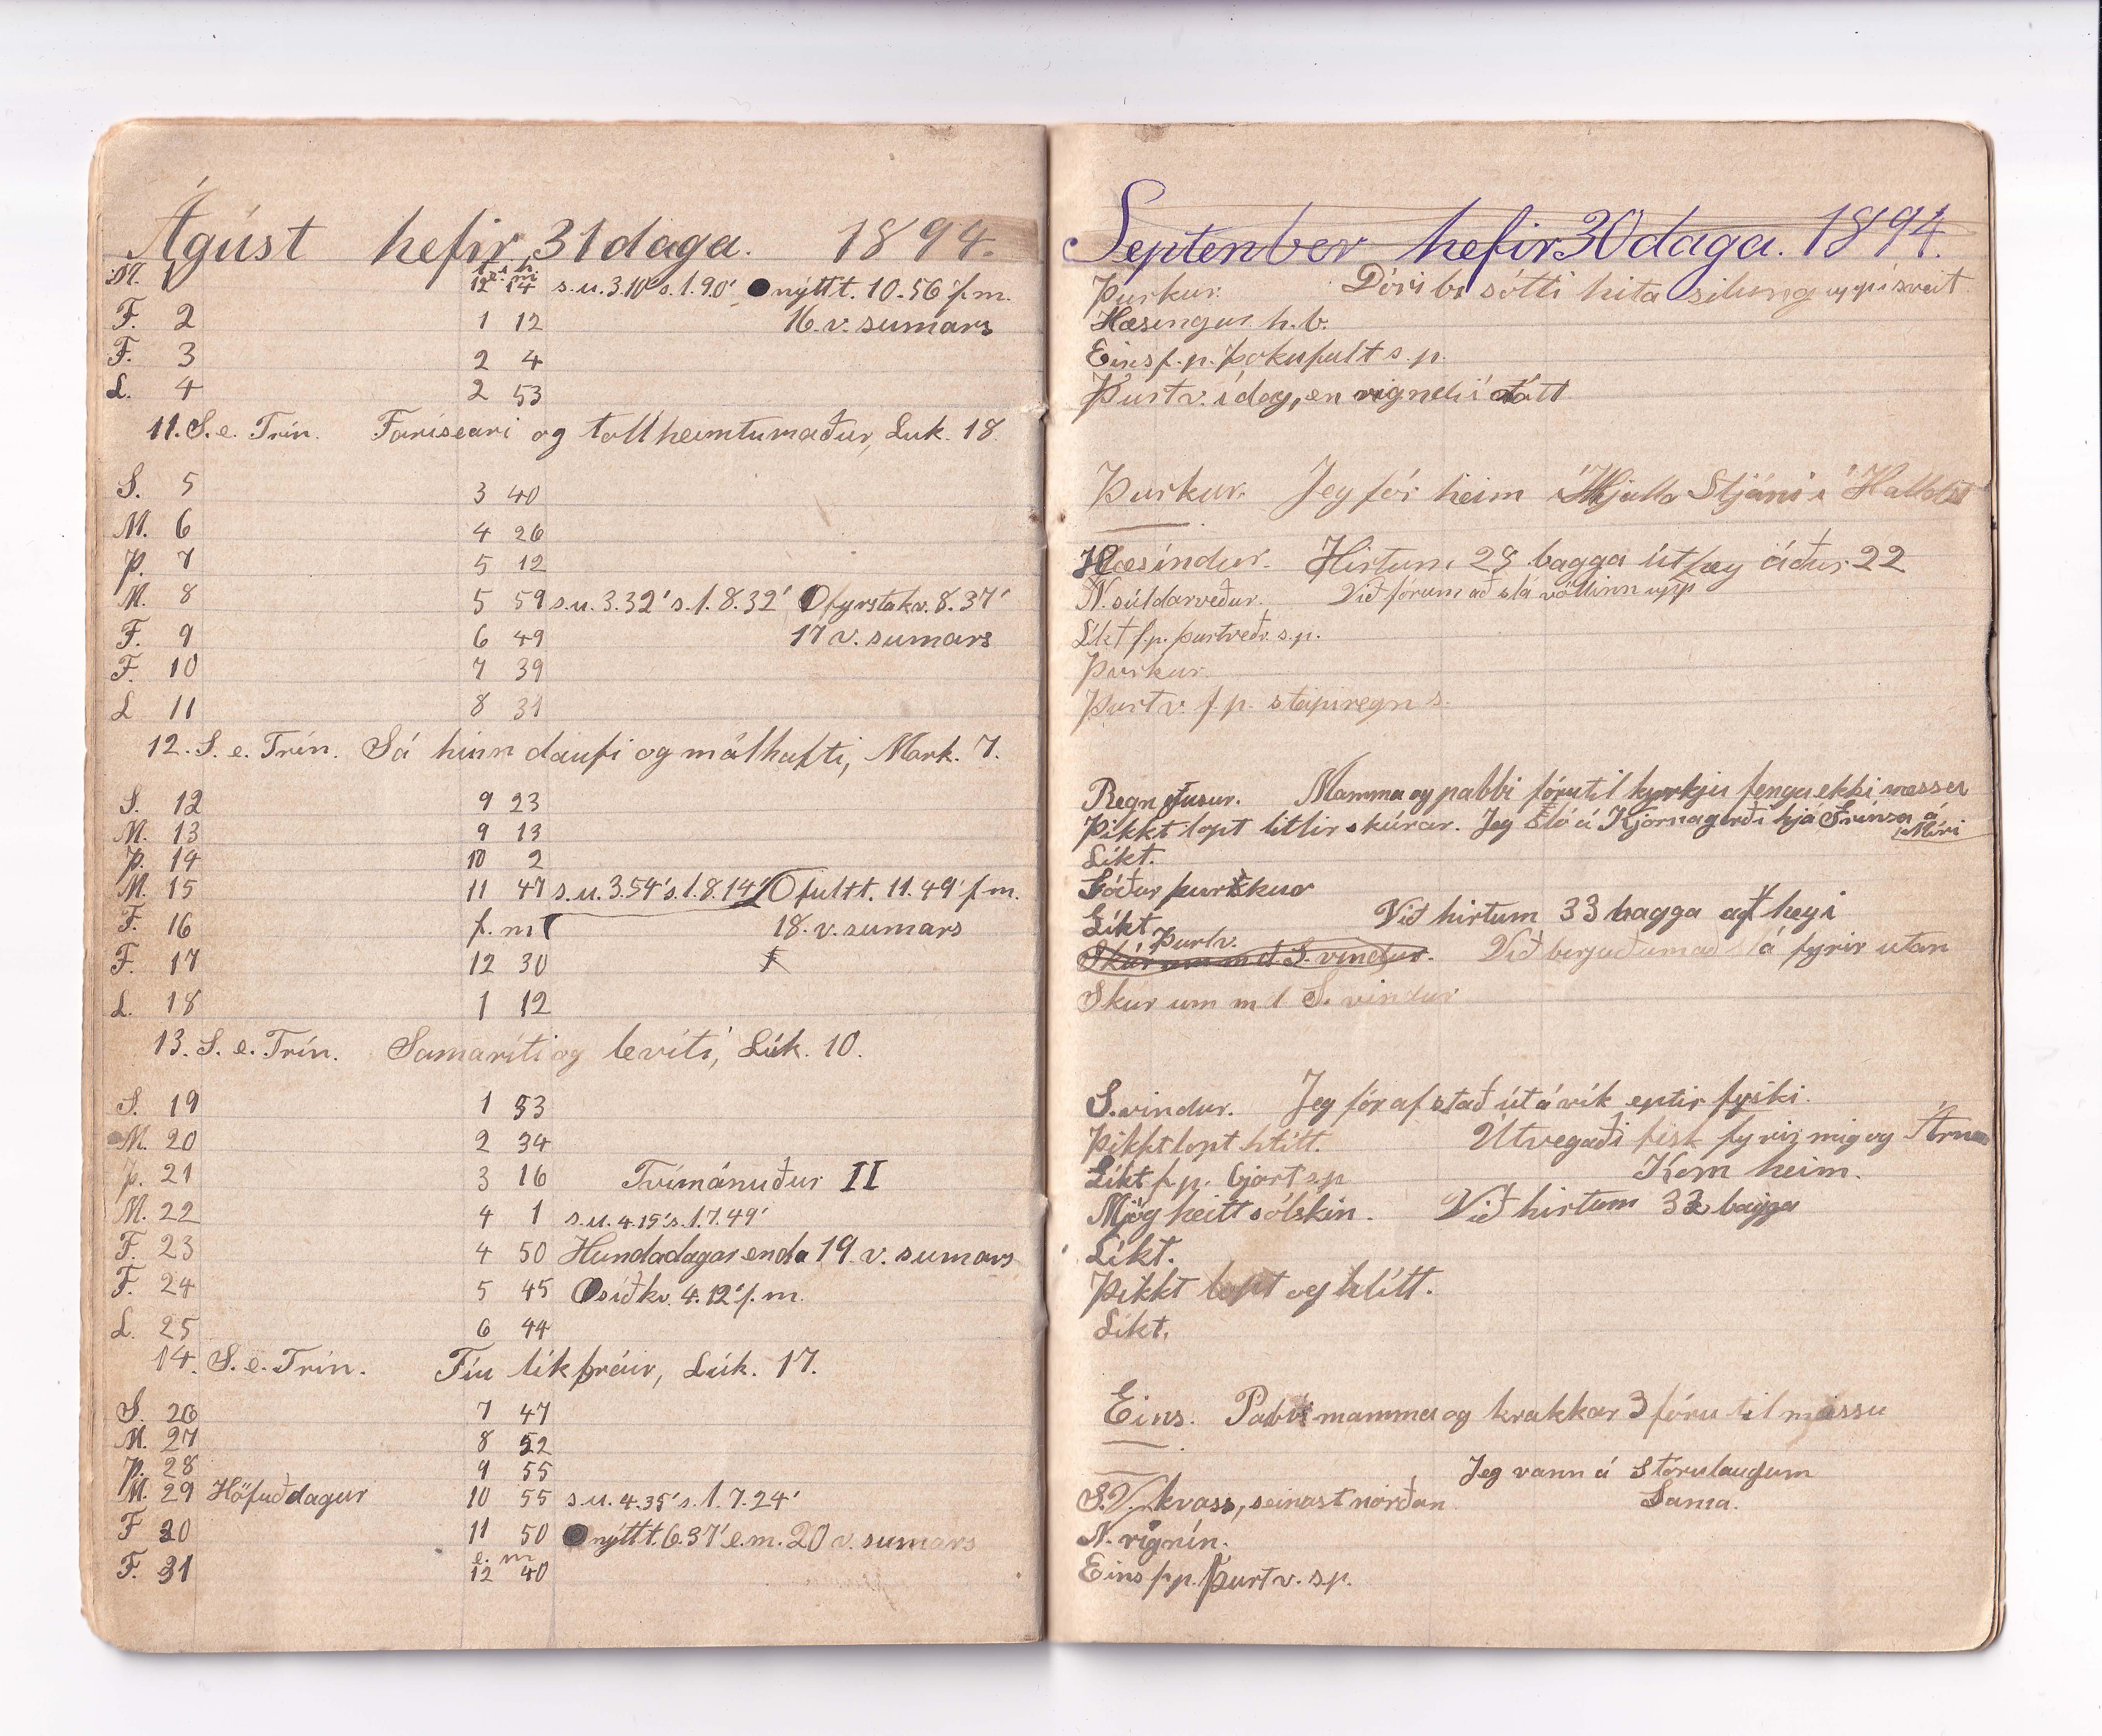 Ágúst hefir 31 daga. 1894.
M. 1 12 14 s.u.3.10's.l.9.0' nýtt t. 10.56' f.m.
F. 2 1 12 16. v. sumars
F. 3 2 4
L. 4 2 53
11. S. e. Trín. Faríseari og tollheimtumaður, Luk. 18.
S. 5 3 40
M. 6 4 26
Þ. 7 5 12
M. 8 5 59 s.u.3.32' s.l.8.32' fyrsta kv. 8.37'
F. 9 6 49 17 v. sumars
F. 10 7 39
L 11 8 31
12. S. e. Trín. Sá hinn daufi og málhalti, Mark. 7.
S. 12 9 23
M. 13 9 13
Þ. 14 10 2
M. 15 11 47 s.u.3.54's.l.8.14' fullt t. 11.49' f.m.
F. 16 f. m 18. v. sumars
F. 17 12 30
L. 18 1 12
13. S. e. Trín. Samaríti og levíti, Lúk. 10.
S. 19 1 53
M. 20 2 34
Þ. 21 3 16 Tvímánuður II
M. 22 4 1 s.u.4.15's.l.7.49'
F. 23 4 50 Hundadagar enda 19. v. sumars
F. 24 5 45 síð kv. 4.12' f.m.
L. 25 6 44
14. S. e. Trín. Tíu líkþráir, Lúk. 17.
S. 26 7 47
M. 27 8 52
Þ. 28 9 55
M. 29 Höfuðdagur 10 55 s.u.4.35's.l.7.24'
F 30 11 50 nýtt t. 6.37' e.m. 20 v. sumars
e. m
F. 31 12 40
September hefir 30 daga. 1894.
Þurkur. sótti silung upp í sveit
Hæsingur h.v.
Eins f.p. þokufult s.p.
Þurt v. í dag, en rigndi í nátt
Þurkur. Jeg fór heim Stjáni í
Hæsindur. Hirtum 28 bagga úthey áður 22
N. súldarveður. Við fórum að slá völlinn upp
Líkt f.p. þurtveðr. s.p.
Þurkur.
Þurt v. f.p. steipiregn s.
Regn Mamma og pabbi fóru til kyrkju fengu ekki messu
Þikkt lopt litlir skúrar. Jeg sló á hjá á
Mýri
Líkt.
Góður þurkur
Líkt Við hirtum 33 bagga af heyi
Þurtv.
Skúr um m.d. S. vindur. Við byrjuðum að slá fyrir utan
Skur um m.d S. vindur
S. vindur. Jeg fór af stað út á vík eptir fyski.
Þikktlopt hlítt. Útvegaði fisk fyrir mig og Árna
Líkt f.p. bjart s.p Kom heim.
Mjög heitt sólskin. Við hirtum 33 bagga
Líkt.
Þikkt lopt og hlítt.
Líkt.
Eins. Pabbi mamma og krakkar 3 fóru til messu
Jeg vann á Stórulaugum
S.V. kvass, seinast norðan Sama.
N. rignín.
Eins f.p. Þurt v. s.p.